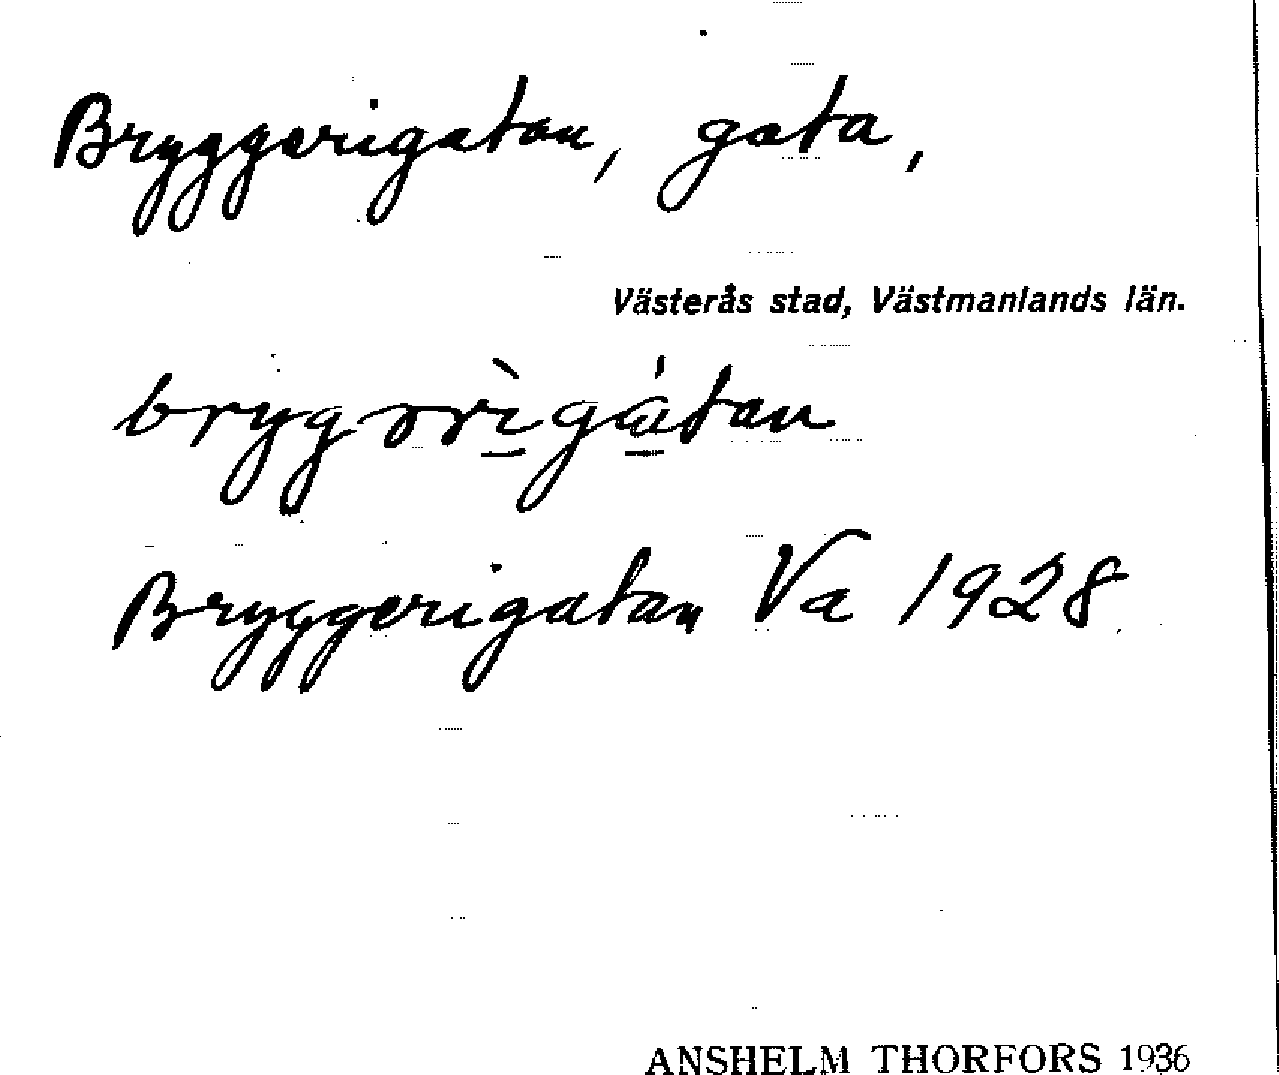 Bryggerigatan, gata,
Västerås stad, Västmanlands län.
brygərìgátan
Bryggerigatan Va 1928
ANSHELM THORFORS 1936